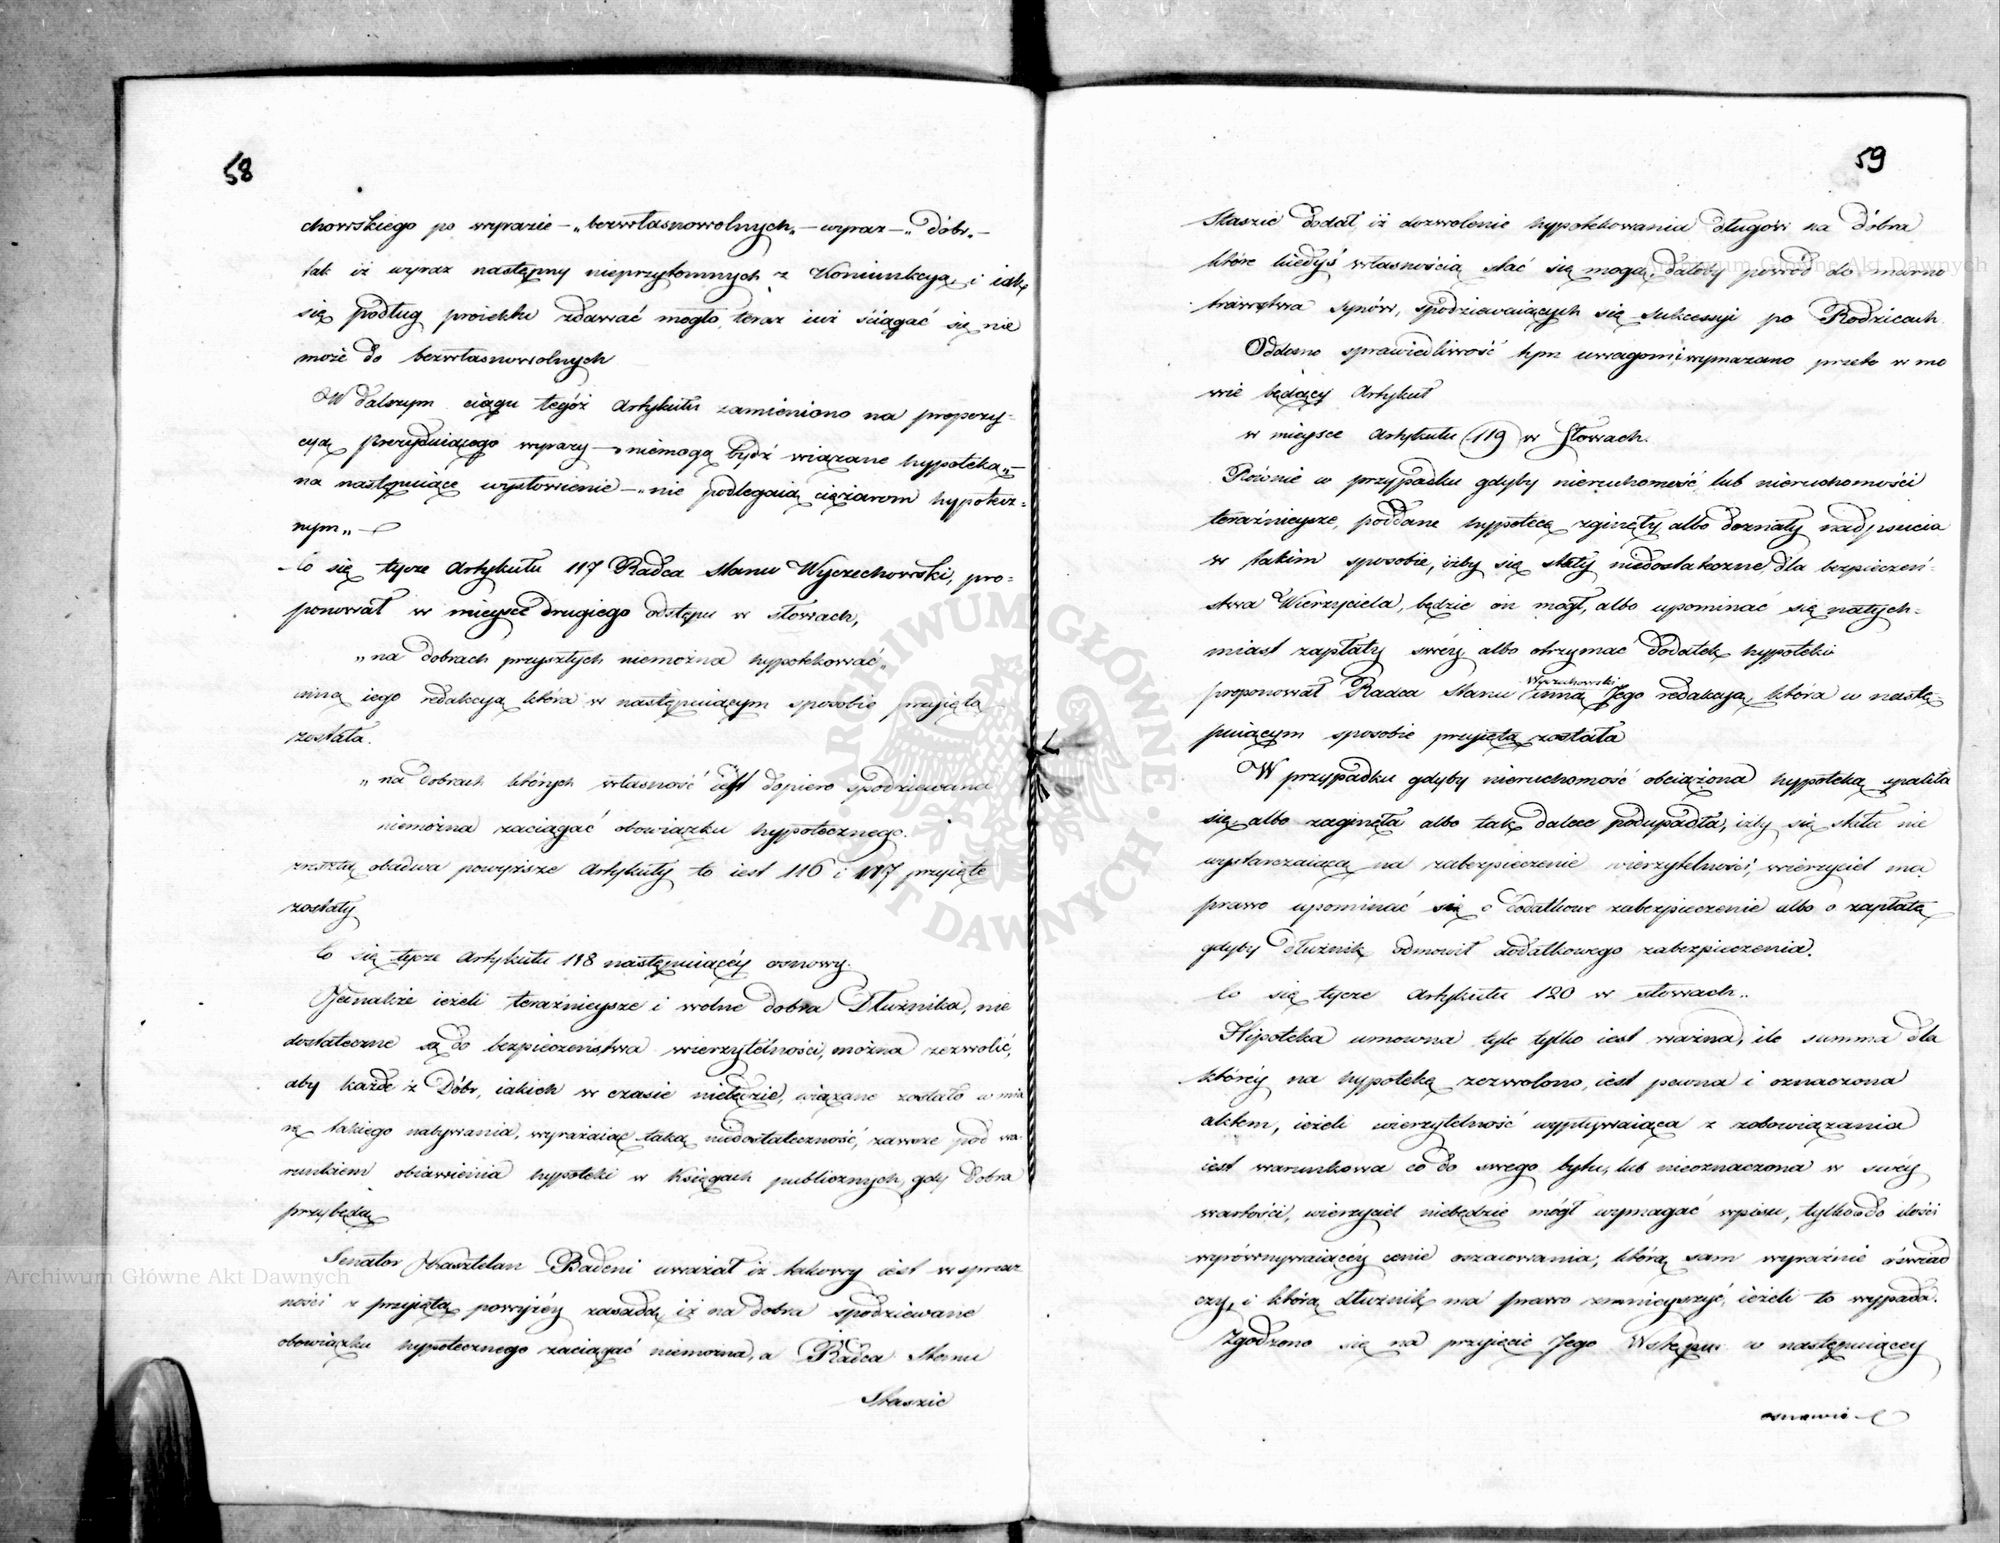 58
chowskiego po wyrazie – „bezwłasnowolnych„ – wyraz – „dóbr„ –
tak iż wyraz następny nieprzytomnych z Koniunkcyą i iak
się podług proiektu zdawać mogło, teraz iuż ściągać się nie
może do bezwłasnowolnych
W dalszym ciągu tegoż Artykułu zamieniono na propozy-
cyą Prezyduiącego wyrazy – niemogą bydź wiązane hypoteką„ –
na następuiące wysłowienie – „nie podlegaią ciężarom hypotecz-
nym„ –
Co się tycze Artykułu 117 Radca Stanu Wyczechowski, pro-
ponował w mieysce drugiego odstępu w słowach,
„na dobrach przyszłych niemożna hypotekować„
inną iego redakcyą, która w następuiącym sposobie przyięta
została.
„na dobrach których własność iest dopiero spodziewana
niemożna zaciągać obowiązku hypotecznego.
zresztą obadwa powyższe Artykuły to iest 116 i 117 przyięte
zostały
Co się tycze Artykułu 118 następuiącéy osnowy.
Jednakże ieżeli teraźnieysze i wolne dobra Dłużnika, nie
dostateczne są do bezpieczeństwa wierzytelności, można zezwolić,
aby każde z Dóbr, iakich w czasie nabędzie, wiązane zostało w mia
rę takiego nabywania, wyrażaiąc taką niedostateczność, zawsze pod wa-
runkiem obiawienia hypoteki w Księgach publicznych, gdy Dobra
przybędą
Senator Kasztelan Badeni uważał iż takowy iest w sprzecz
ności z przyiętą powyżéy zasadą, iż na dobra spodziewane
obowiązku hypotecznego zaciągać niemożna, a Radca Stanu
Staszic
59
Staszic dodał, iż dozwolenie hypotekowania długów na dobra
które kiedyś własnością stać się mogą, dałoby powód do marno
trawstwa synów, spodziewaiących się sukcessyi po Rodzicach.
Oddano sprawiedliwość tym uwagom; wymazano przeto w mo
wie będący Artykuł
w mieysce Artykułu 119 w słowach.
Równie w przypadku gdyby nieruchomość lub nieruchomości
teraźnieysze, poddane hypotece zginęły, albo doznały nadpsucia
w takim sposobie, iżby się stały niedostateczne, dla bezpieczeń-
stwa Wierzyciela, będzie on mógł, albo upominać się natych-
miast zapłaty swéy albo otrzymać dodatek hypoteki
proponował Radca Stanu Wyczechowski inną Jego redakcyą, która w nastę-
puiącym sposobie przyięta została
W przypadku gdyby nieruchomość obciążona hypoteką spaliła
się, albo zaginęła albo tak dalece podupadła, iżby się stała nie
wystarczaiącą na zabezpieczenie wierzytelności, wierzyciel ma
prawo upominać się o dodatkowe zabezpieczenie albo o zapłatę
gdyby dłużnik odmowił dodatkowego zabezpieczenia.
Co się tycze Artykułu 120 w słowach„
Hipoteka umowna tyle tylko iest ważna, ile summa dla
któréy na hypotekę zezwolono, iest pewna i oznaczona
aktem, ieżeli wierzytelność wypływaiąca z zobowiązania
iest warunkowa co do swego bytu, lub nieoznaczona w swéy
wartości, wierzyciel niebędzie mógł wymagać wpisu, tylko do ilości
wyrównywaiącéy cenie oszacowania, którą sam wyraźnie oświad
czy, i którą dłużnik ma prawo zmnieyszyć, ieżeli to wypada.
Zgodzono się na przyięcie Jego Wstępu w następuiącéy
osnowie
Archiwum Główne Akt Dawnych
Archiwum Główne Akt Dawnych
ARCHIWUM GŁÓWNE AKT DAWNYCH